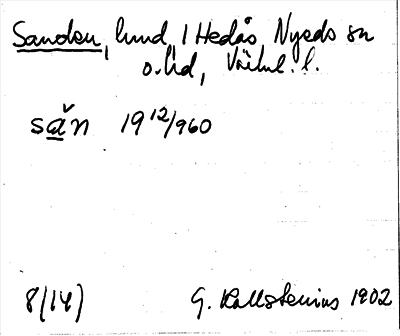 Sanden, lund, 1 Hedås, Nyeds sn
o. hd, Värml. l.
săn 19 12/9 60
8(14) G. Kallstenius 1902